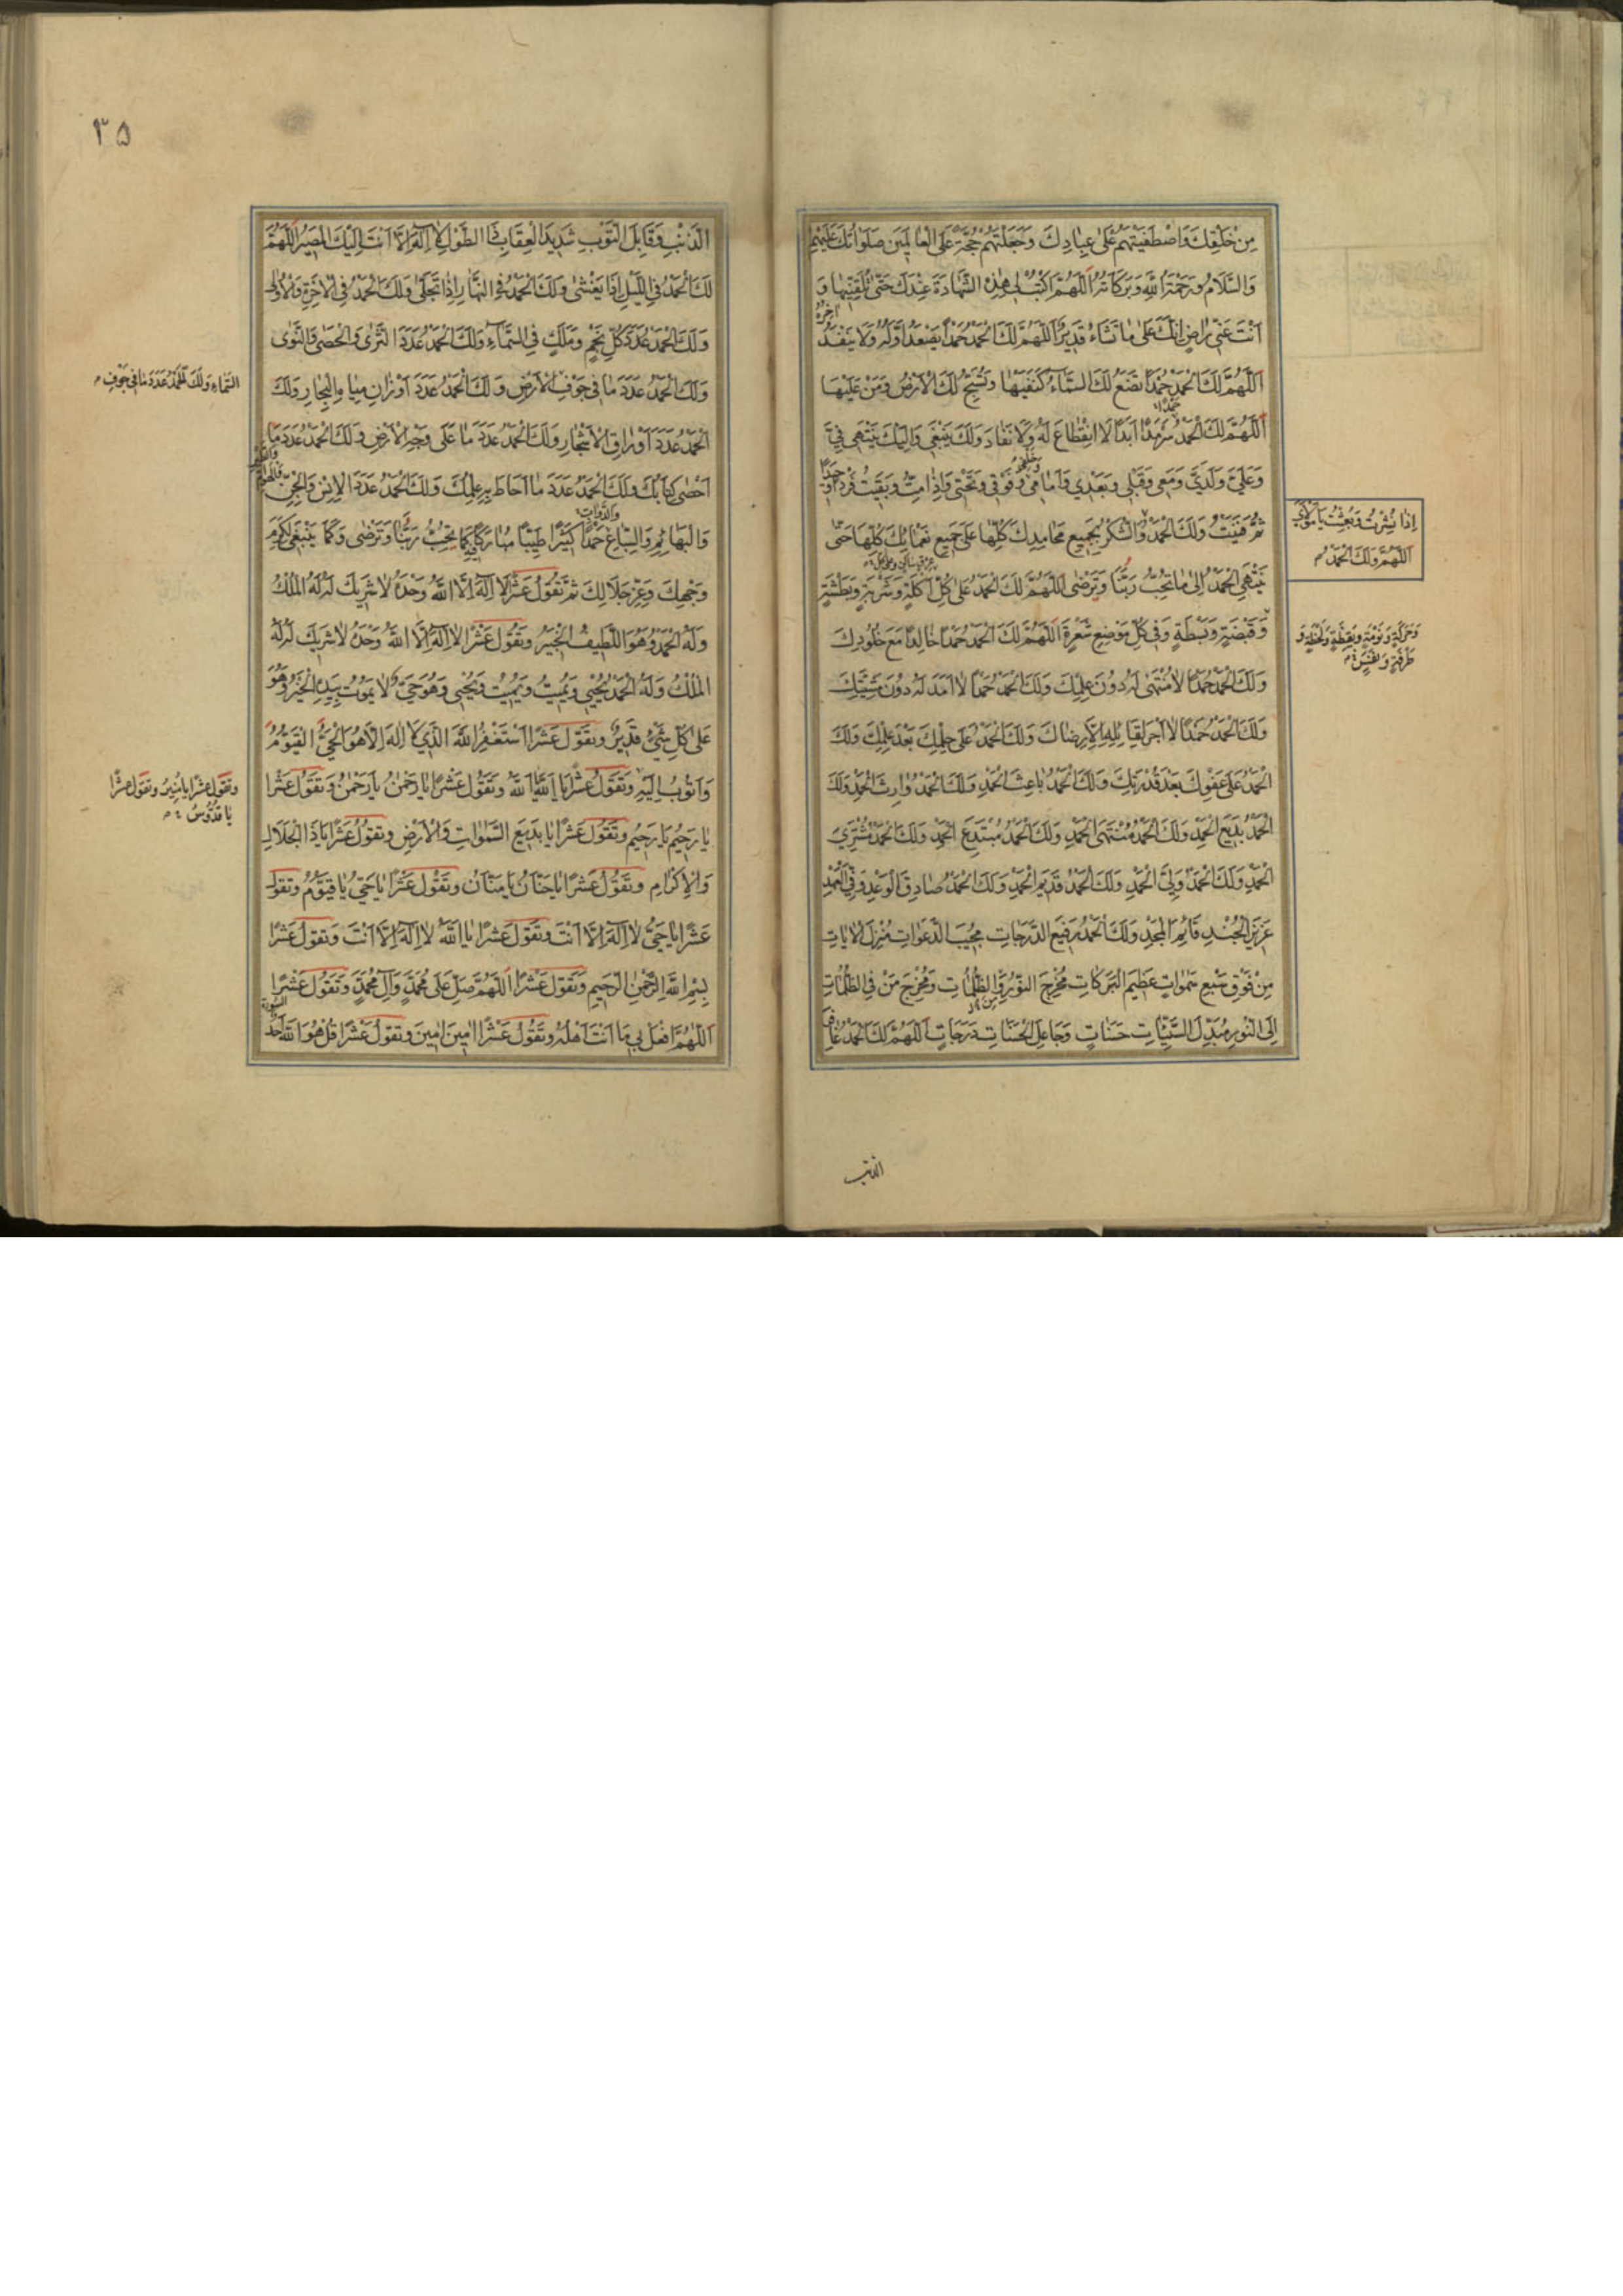 مِنْ خَلْقِكَ وَاصْطَفَيْتَهُمْ عَلٰى عِبَادِكَ وَجَعَلْتَهُمْ حُجَّةً عَلَى الْعَالَمِينَ صَلَوَاتُكَ عَلَيْهِمْ
وَالسَّلَامُ وَرَحْمَةُ اللّٰهِ وَبَرَكَاتُهُ اَللّٰهُمَّ اكْتُبْ لِي هٰذِهِ الشَّهَادَةَ عِنْدَكَ حَتّٰى تُلَقِّنِيهَا وَ
اَنْتَ عَنّي رَاضٍ اِنَّكَ عَلٰى مَا تَشَاءُ قَدِيرٌ اَللّٰهُمَّ لَكَ الْحَمْدُ حَمْدًا يَصْعَدُ اَوَّلُهُ وَلَا يَنْفَدُ
اٰخِرُهُ
اَللّٰهُمَّ لَكَ الْحَمْدُ حَمْدًا تَضَعُ لَكَ السَّمَاءُ كَنَفَيْهَا وَتُسَبِّحُ لَكَ الْاَرْضُ وَمَنْ عَلَيْهَا
حَمْدًا
اَللّٰهُمَّ لَكَ الْحَمْدُ سَرْمَدًا اَبَدًا لَا انْقِطَاعَ لَهُ وَلَا نَفَادَ وَلَكَ يَنْبَغِي وَاِلَيْكَ يَنْتَهِي فِيَّ
وَعَلَيَّ وَلَدَيَّ وَمَعِي وَقَبْلِي وَبَعْدِي وَاَمَامِي وَفَوْقِي وَتَحْتِي وَاِذَا مِتُّ وَبَقِيتُ فَرْدًا وَحِيدًا
وَخَلْفِي
ثُمَّ فَنِيتُ وَلَكَ الْحَمْدُ وَالشُّكْرُ بِجَمِيعِ مَحَامِدِكَ كُلِّهَا عَلٰى جَمِيعِ نَعْمَائِكَ كُلِّهَا حَتّٰى
اِذَا نُشِرْتُ وَبُعِثْتُ يَا مَوْلَايَ
اَللّٰهُمَّ وَلَكَ الْحَمْدُ
يَنْتَهِيَ الْحَمْدُ اِلٰى مَا تُحِبُّ رَبَّنَا وَتَرْضٰى اَللّٰهُمَّ لَكَ الْحَمْدُ عَلٰى كُلِّ اَكْلَةٍ وَشَرْبَةٍ وَبَطْشَةٍ
عِرْقٍ سَاكِنٍ وَعَلٰى كُلِّ
وَقَبْضَةٍ وَبَسْطَةٍ وَفِي كُلِّ مَوْضِعِ شَعْرَةٍ اَللّٰهُمَّ لَكَ الْحَمْدُ حَمْدًا خَالِدًا مَعَ خُلُودِكَ
وَحَرَكَةٍ وَنَوْمَةٍ وَيَقَظَةٍ وَلَحْظَةٍ وَ
طَرْفَةٍ وَنَفَسٍ
وَلَكَ الْحَمْدُ حَمْدًا لَا مُنْتَهٰى لَهُ دُونَ عِلْمِكَ وَلَكَ الْحَمْدُ حَمْدًا لَا اَمَدَ لَهُ دُونَ مَشِيَّتِكَ
وَلَكَ الْحَمْدُ حَمْدًا لَا اَجْرَ لِقَائِلِهِ اِلَّا رِضَاكَ وَلَكَ الْحَمْدُ عَلٰى حِلْمِكَ بَعْدَ عِلْمِكَ وَلَكَ
الْحَمْدُ عَلٰى عَفْوِكَ بَعْدَ قُدْرَتِكَ وَلَكَ الْحَمْدُ بَاعِثَ الْحَمْدِ وَلَكَ الْحَمْدُ وَارِثَ الْحَمْدِ وَلَكَ
الْحَمْدُ بَدِيعَ الْحَمْدِ وَلَكَ الْحَمْدُ مُنْتَهَى الْحَمْدِ وَلَكَ الْحَمْدُ مُبْتَدِعَ الْحَمْدِ وَلَكَ الْحَمْدُ مُشْتَرِيَ
الْحَمْدِ وَلَكَ الْحَمْدُ وَلِيَّ الْحَمْدِ وَلَكَ الْحَمْدُ قَدِيمَ الْحَمْدِ وَلَكَ الْحَمْدُ صَادِقَ الْوَعْدِ وَفِيَّ الْعَهْدِ
عَزِيزَ الْجُنْدِ قَائِمَ الْمَجْدِ وَلَكَ الْحَمْدُ رَفِيعَ الدَّرَجَاتِ مُجِيبَ الدَّعَوَاتِ مُنْزِلَ الْاٰيَاتِ
مِنْ فَوْقِ سَبْعِ سَمٰوَاتٍ عَظِيمَ الْبَرَكَاتِ مُخْرِجَ النُّورِ مِنَ الظُّلُمَاتِ وَمُخْرِجَ مَنْ فِي الظُّلُمَاتِ
اِلَى النُّورِ مُبَدِّلَ السَّيِّئَاتِ حَسَنَاتٍ وَجَاعِلَ الْحَسَنَاتِ دَرَجَاتٍ اَللّٰهُمَّ لَكَ الْحَمْدُ غَافِرَ
الذنب
۳۵
الذَّنْبِ وَقَابِلَ التَّوْبِ شَدِيدَ الْعِقَابِ ذَا الطَّوْلِ لَا اِلٰهَ اِلَّا اَنْتَ اِلَيْكَ الْمَصِيرُ اَللّٰهُمَّ
لَكَ الْحَمْدُ فِي اللَّيْلِ اِذَا يَغْشٰى وَلَكَ الْحَمْدُ فِي النَّهَارِ اِذَا تَجَلّٰى وَلَكَ الْحَمْدُ فِي الْاٰخِرَةِ وَالْاُولٰى
وَلَكَ الْحَمْدُ عَدَدَ كُلِّ نَجْمٍ وَمَلَكٍ فِي السَّمَاءِ وَلَكَ الْحَمْدُ عَدَدَ الثَّرٰى وَالْحَصٰى وَالنَّوٰى
السَّمَاءِ وَلَكَ الْحَمْدُ عَدَدَ مَا فِي جَوْفِ
وَلَكَ الْحَمْدُ عَدَدَ مَا فِي جَوْفِ الْاَرْضِ وَلَكَ الْحَمْدُ عَدَدَ اَوْزَانِ مِيَاهِ الْبِحَارِ وَلَكَ
الْحَمْدُ عَدَدَ اَوْرَاقِ الْاَشْجَارِ وَلَكَ الْحَمْدُ عَدَدَ مَا عَلٰى وَجْهِ الْاَرْضِ وَلَكَ الْحَمْدُ عَدَدَ مَا
اَحْصٰى كِتَابُكَ وَلَكَ الْحَمْدُ عَدَدَ مَا اَحَاطَ بِهِ عِلْمُكَ وَلَكَ الْحَمْدُ عَدَدَ الْاِنْسِ وَالْجِنِّ وَالْهَوَامِّ
وَالطَّيْرِ
وَالْبَهَائِمِ وَالسِّبَاعِ حَمْدًا كَثِيرًا طَيِّبًا مُبَارَكًا فِيهِ كَمَا تُحِبُّ رَبَّنَا وَتَرْضٰى وَكَمَا يَنْبَغِي لِكَرَمِ
وَالدَّوَابِّ
وَجْهِكَ وَعِزِّ جَلَالِكَ ثم تَقُولُ عَشْرًا لَا اِلٰهَ اِلَّا اللّٰهُ وَحْدَهُ لَا شَرِيكَ لَهُ لَهُ الْمُلْكُ
وَلَهُ الْحَمْدُ وَهُوَ اللَّطِيفُ الْخَبِيرُ وَتَقُولُ عَشْرًا لَا اِلٰهَ اِلَّا اللّٰهُ وَحْدَهُ لَا شَرِيكَ لَهُ لَهُ
الْمُلْكُ وَلَهُ الْحَمْدُ يُحْيِي وَيُمِيتُ وَيُمِيتُ وَيُحْيِي وَهُوَ حَيٌّ لَا يَمُوتُ بِيَدِهِ الْخَيْرُ وَهُوَ
عَلٰى كُلِّ شَيْءٍ قَدِيرٌ وَتَقُولُ عَشْرًا اَسْتَغْفِرُ اللّٰهَ الَّذِي لَا اِلٰهَ اِلَّا هُوَ الْحَيُّ الْقَيُّومُ
وَاَتُوبُ اِلَيْهِ وَتَقُولُ عَشْرًا يَا اَللّٰهُ يَا اَللّٰهُ وَتَقُولُ عَشْرًا يَا رَحْمٰنُ يَا رَحْمٰنُ وَتَقُولُ عَشْرًا
وَتَقُولُ عَشْرًا يَا مُنِيرُ وَتَقُولُ عَشْرًا
يَا قُدُّوسُ
يَا رَحِيمُ يَا رَحِيمُ وَتَقُولُ عَشْرًا يَا بَدِيعَ السَّمٰوَاتِ وَالْاَرْضِ وَتَقُولُ عَشْرًا يَا ذَا الْجَلَالِ
وَالْاِكْرَامِ وَتَقُولُ عَشْرًا يَا حَنَّانُ يَا مَنَّانُ وَتَقُولُ عَشْرًا يَا حَيُّ يَا قَيُّومُ وَتَقُولُ
عَشْرًا يَا حَيُّ لَا اِلٰهَ اِلَّا اَنْتَ وَتَقُولُ عَشْرًا يَا اَللّٰهُ لَا اِلٰهَ اِلَّا اَنْتَ وَتَقُولُ عَشْرًا
بِسْمِ اللّٰهِ الرَّحْمٰنِ الرَّحِيمِ وَتَقُولُ عَشْرًا اَللّٰهُمَّ صَلِّ عَلٰى مُحَمَّدٍ وَآلِ مُحَمَّدٍ وَتَقُولُ عَشْرًا
اَللّٰهُمَّ افْعَلْ بِي مَا اَنْتَ اَهْلُهُ وَتَقُولُ عَشْرًا اٰمِينَ اٰمِينَ وَتَقُولُ عَشْرًا قُلْ هُوَ اللّٰهُ اَحَدٌ
السورة